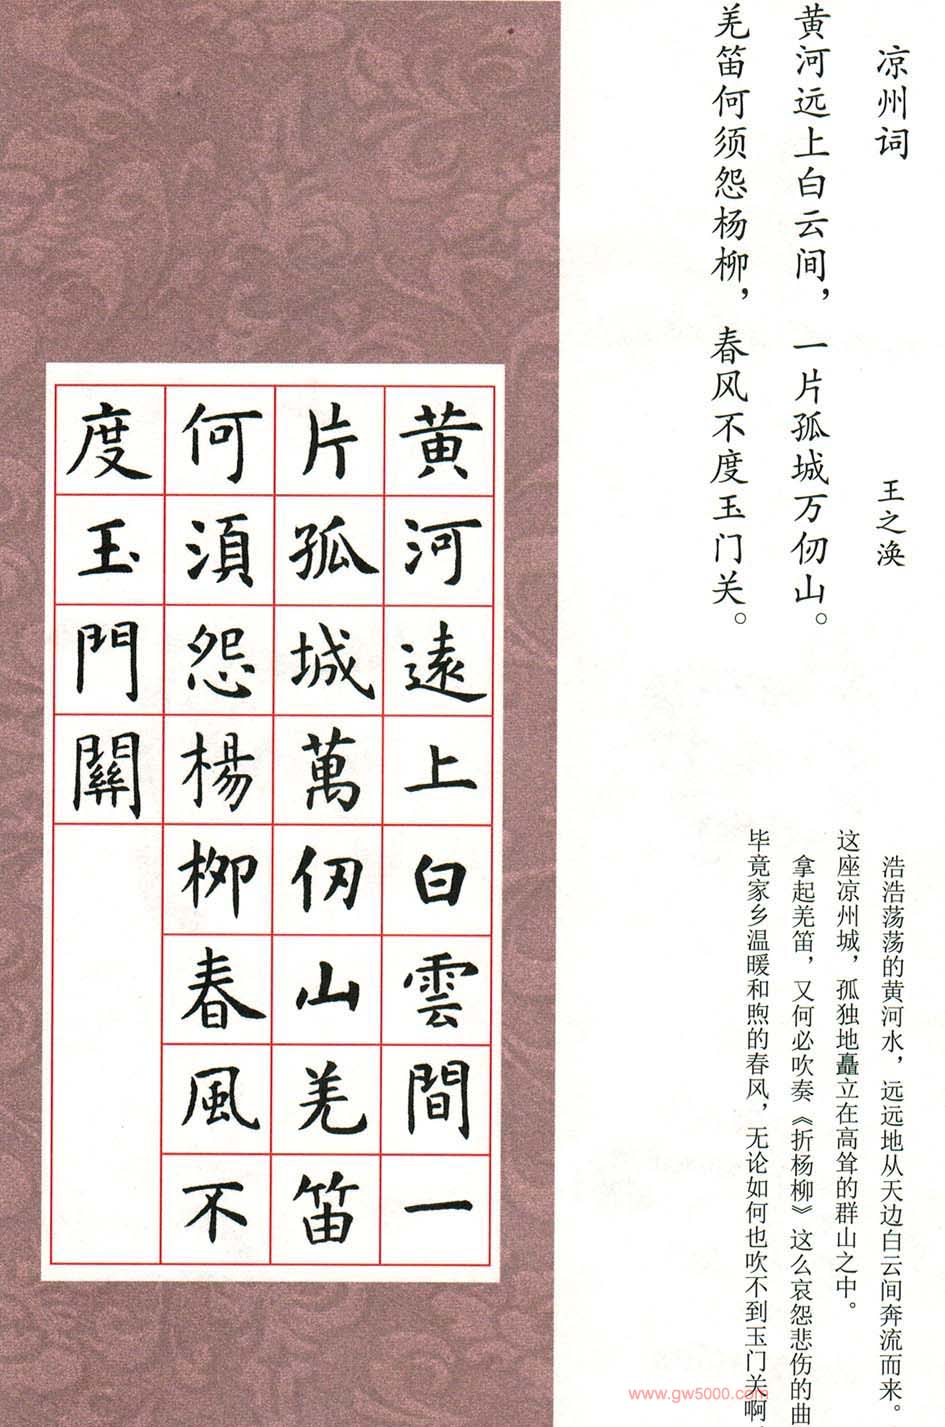 凉州词
王之涣
黄河远上白云间，一片孤城万仞山。
羌笛何须怨杨柳，春风不度玉门关。
浩浩荡荡的黄河水，远远地从天边白云间奔流而来。
这座凉州城，孤独地矗立在高耸的群山之中。
拿起羌笛，又何必吹奏《折杨柳》这么哀怨悲伤的曲
毕竟家乡温暖和煦的春风，无论如何也吹不到玉门关啊
黄河遠上白雲間一
片孤城萬仞山羌笛
何須怨楊柳春風不
度玉門關
www.gw5000.com